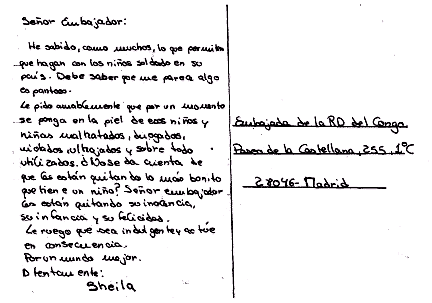 Señor Embajador:
He sabido, como muchos, lo que permiten
que hagan con los niños soldado en su
país. Debe saber que me parece algo
espantoso.
Le pido amablemente que por un momento
se ponga en la piel de esos niños y
niñas maltratados, drogados,
violados, ultrajados y sobre todo
utilizados. ¿No se da cuenta de
que les están quitando lo más bonito
que tiene un niño? Señor embajador
les están quitando su inocencia,
su infancia y su felicidad.
Le ruego que sea indulgente y actúe
en consecuencia.
Por un mundo mejor.
Atentamente:
Sheila
Embajada de la RD del Congo
Paseo de la Castellana, 255, 1ºC
28046-Madrid